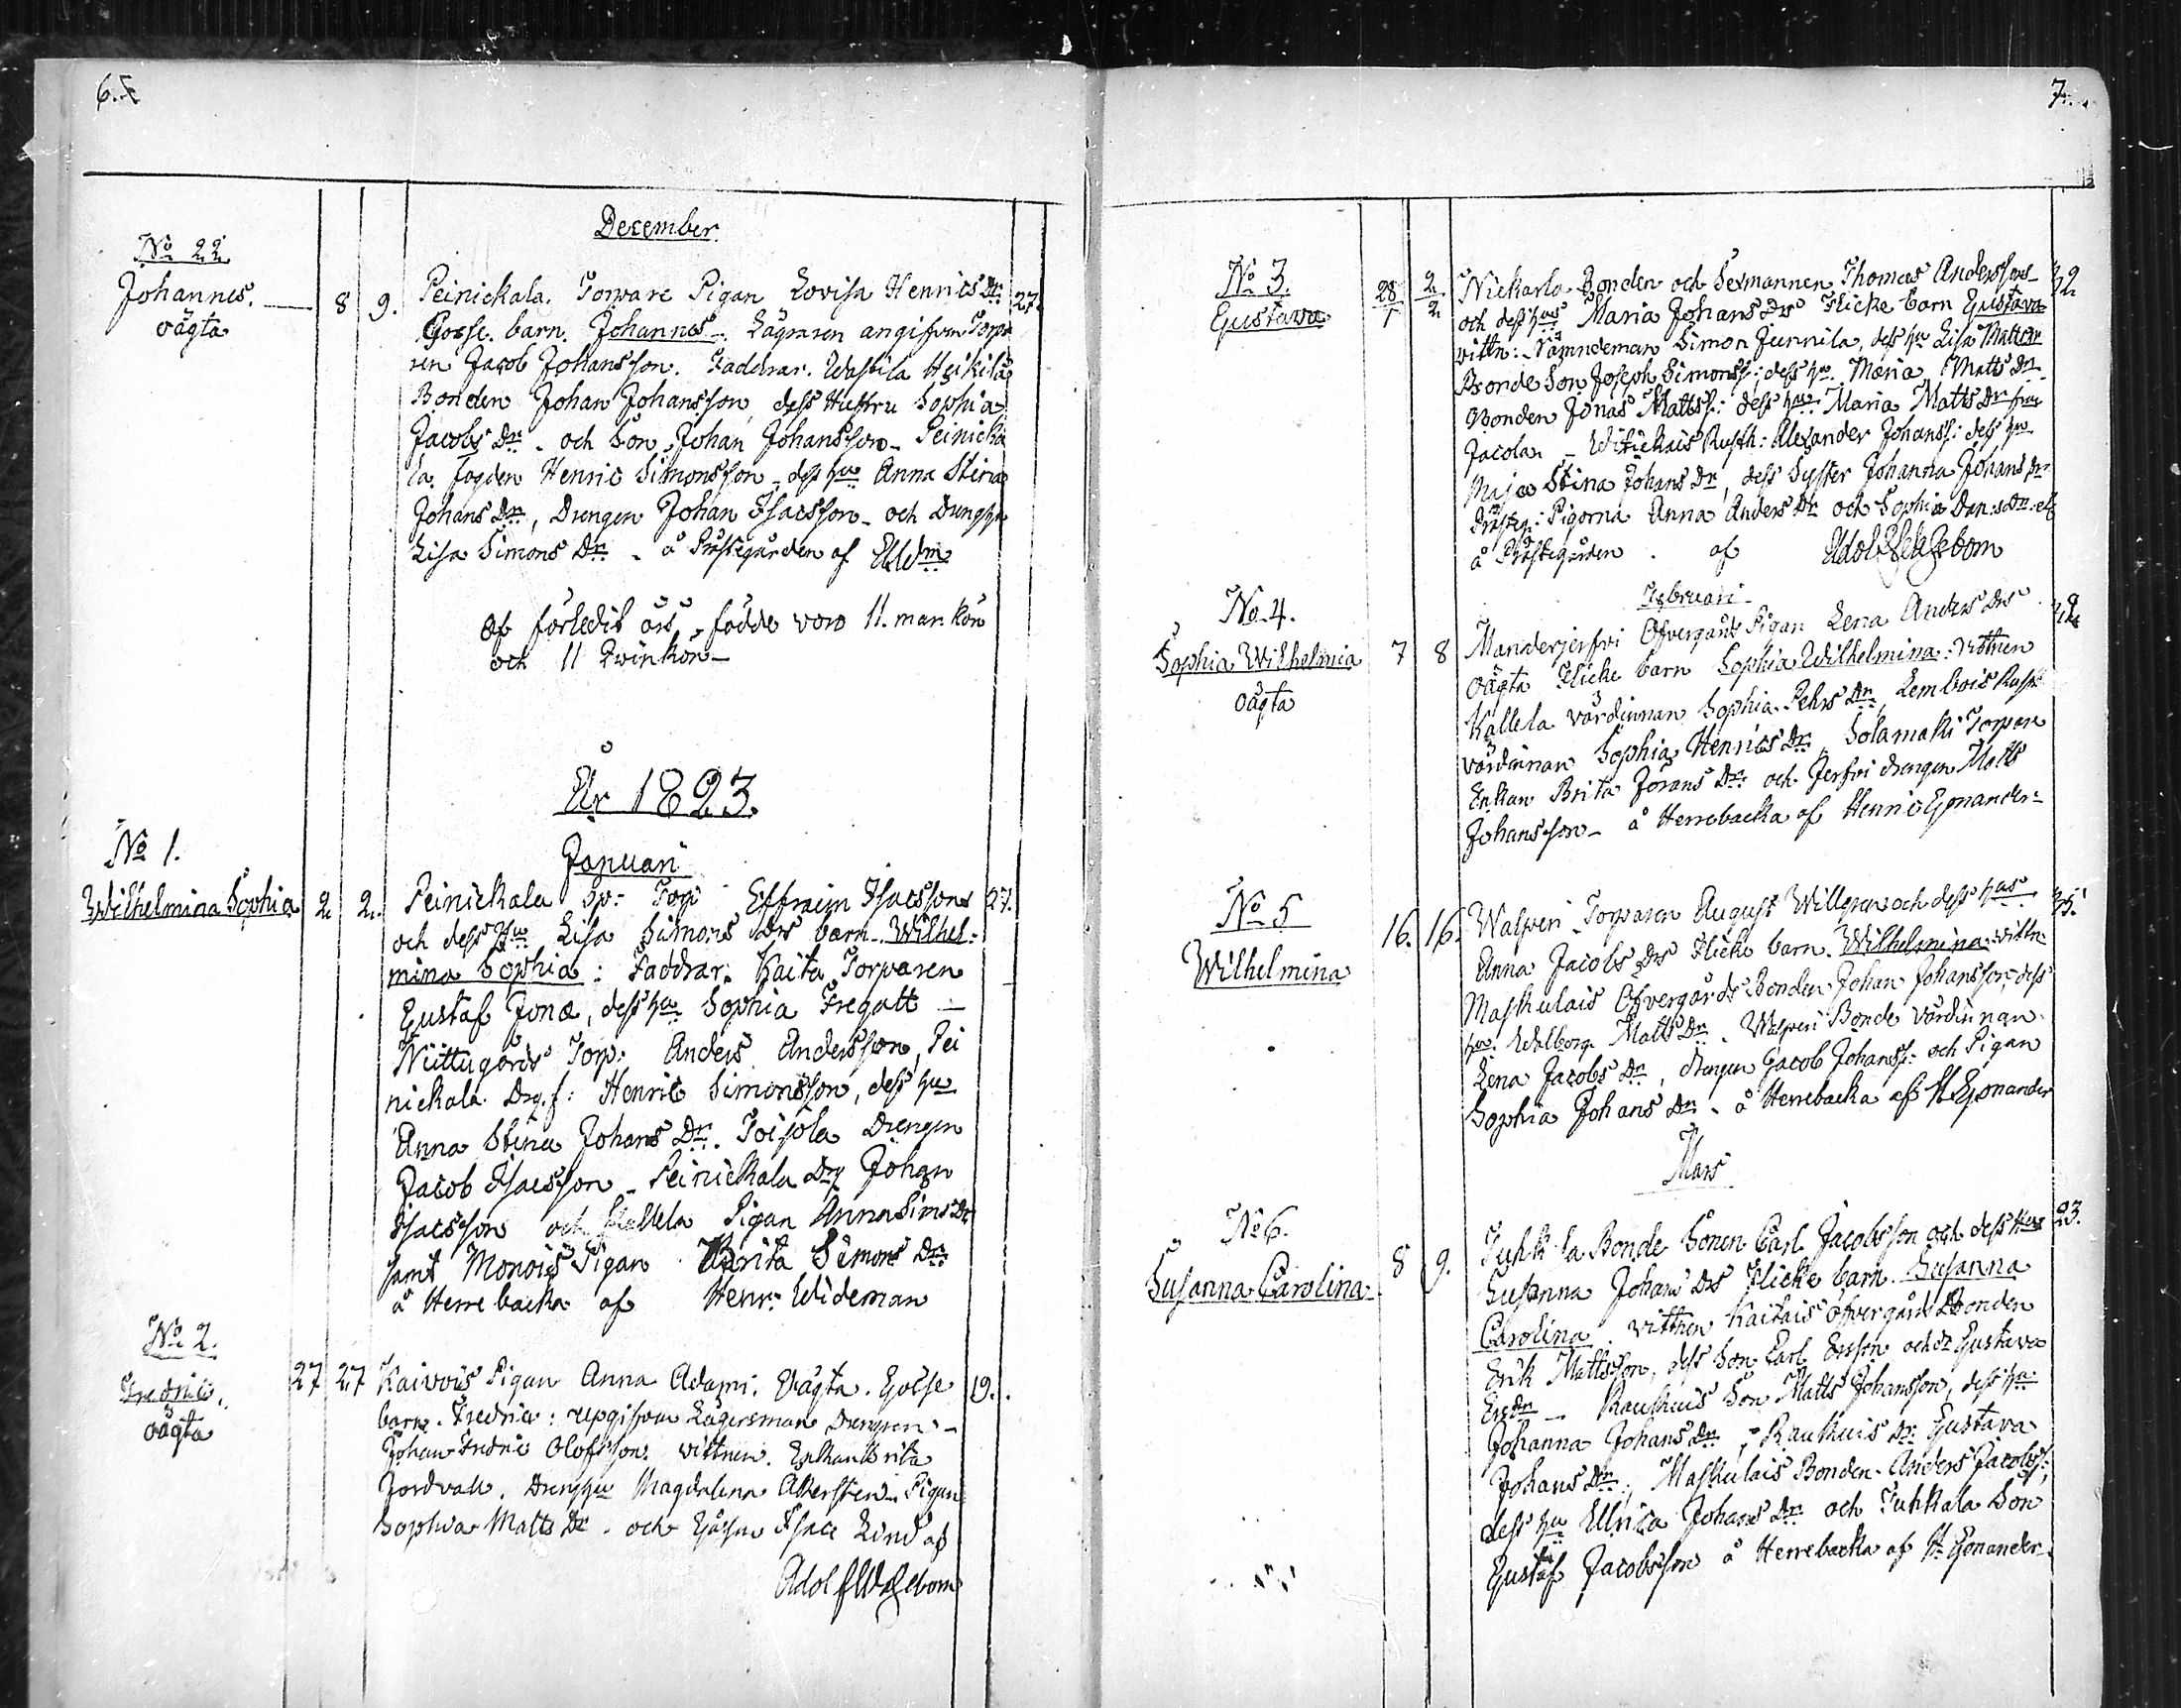 6.
December
No 22
Johannes.
oägta
8 9. Peinickala. Torpare Pigan Lovisa Henrics Dr 27.
Gosse barn. Johannes. Lägraren angifven Torpa
ren Jacob Johansson. Faddrar. Heikilä
Bonden Johan Johansson, dess Hustru Sophia
Jacobs Dr. och Son Johan Johansson Peinicka
la. fogden Henric Simonsson dess hu Anna Stina
Johans Dr, Drengen Johan Isacsson och Drenghu
Lisa Simons Dr. å Prästgården af
Af förledit års födde voro 11. mankön
och 11 Qvinkön
År 1823.
Januari
No 1.
Wilhelmina Sophia 2. 2. Peinickala Torp Effraim Isacssons 27.
och dess Hu Lisa Simons Drs barn Wilhel-
mina Sophia: Faddrar: Kaita Torparen
Gustaf Jonæ, dess hu Sophia Fregatt
Niittugårds Torp: Anders Andersson, Pei
nickala Drg.f: Henric Simonsson, dess hu
Anna Stina Johans Dr. Toijola Drengen
Jacob Isacsson Peinickala Drg Johan
Isacsson och Pigan Anna Sims Dr
samt Monois Pigan Brita Simons Dr
å Herrebacka af Henr: Wideman
No 2.
Fredric.
oägta
27 27 Kaivois Pigan Anna Adami: oägta. Gosse 19.
barn. Fredric: uppgifven Lägersman Drengen
Johan Fredric Olofsson. vittnen. Enkan Brita
Jordvall. Drenghu Magdalena Pigan
Sophia Matts Dr. och Gossen Isac Lind af
Adolf
7.
No 3.
Gustava
28/1 2/2 Nickarla Bonden och Sexmannen Thomas Anderssons 32
och dess hus Maria Johans Drs Flicke barn Gustava
vittn: Nämndeman Simon Junnila, dess hu Lisa Matts Dr
Bonde Son Joseph Simonss: dess hu. Maria Matts Dr
Bonden Jonas Mattss: dess hu: Maria Matts Dr från
Jacola. Rusth: Alexander Johanss: dess hu
Maja Stina Johans Dr, dess Syster Johanna Johans Dr
Prästeg: Pigorna Anna Anders Dr och Sophia Dan:s Dr
å Prästegården. af
Februari
No. 4.
Sophia Wilhelmia
oägta
7 8 Manderjerfvi Öfvergårds Pigan Lena Anders Drs
oägta Flicke barn Sophia Wilhelmina: vittnen
Kallela värdinnan Sophia Pehrs Dr, Lembois Rusth
värdinnan Sophia Henrics Dr, Solamaki Torpare
Enkan Brita Jörans Dr: och Jerfvi drengen Matts
Johansson å Herrebacka af Henric Gonander
No 5
Wilhelmina
16. 16. Walperi Torparen August Willgren och dess hus 35.
Anna Jacobs Drs Flicke barn. Wilhelmina vittn:
Maskulais Öfvergårds Bonden Johan Johansson, dess
hu. Walborg Matts Dr. Walperi Bonde Värdinnan
Lena Jacobs Dr, drengen Jacob Johanss: och Pigan
Sophia Johans Dr. å Herrebacka af H Gonander
Mars
No 6.
Susanna Carolina
8 9. Juhkola Bonde Sonen Carl Jacobsson och dess Hus 23.
Susanna Johans Drs Flicke barn. Susanna
Carolina. vittnen Kaitais öfvergårds Bonden
Erik Mattsson, dess Son Carl Ersson och Dr Gustava
Ers Dr Raukuis Son Matts Johansson, dess hu
Johanna Johans Dr, Raukuis Dr: Gustava
Johans Dr, Maskulais Bonden Anders Jacobss:
dess hu Ullrica Johans Dr och Juhkala Son
Gustaf Jacobsson å Herrebacka af H Gonander